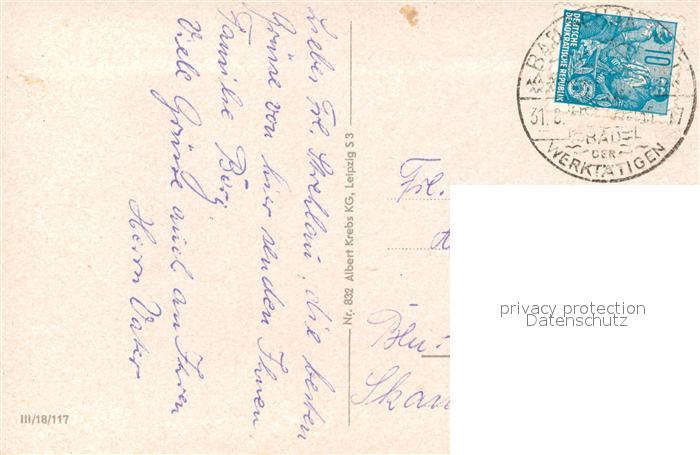 Liebes Frl. Strehlau, die besten
Grüsse von hier senden Ihnen
Familie Berg
Viele Grüsse auch an Ihren
Herrn Vater
Nr. 832 Albert Krebs KG, Leipzig S 3
III/18/117
DEUTSCHE
DEMOKRATISCHE REPUBLIK
10
BAD
31.8.
DER
WERKTÄTIGEN
Frl.
privacy protection
Datenschutz